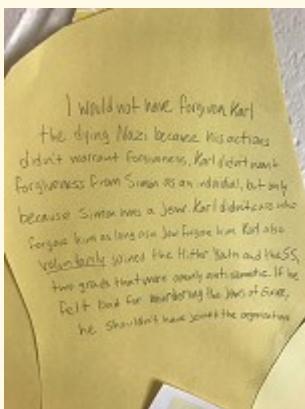 I would not have forgiven Karl
the dying Nazi because his actions
didn't warrant forgiveness. Karl didn't want
forgiveness from Simon as an individual, but only
because Simon was a Jew. Karl didn't care who
forgave him as long as a Jew forgave him. Karl also
voluntarily joined the Hitler Youth and the SS,
two groups that were openly antisemetic. If he
felt bad for murdering the Jews of
he shouldn't have joined the organization